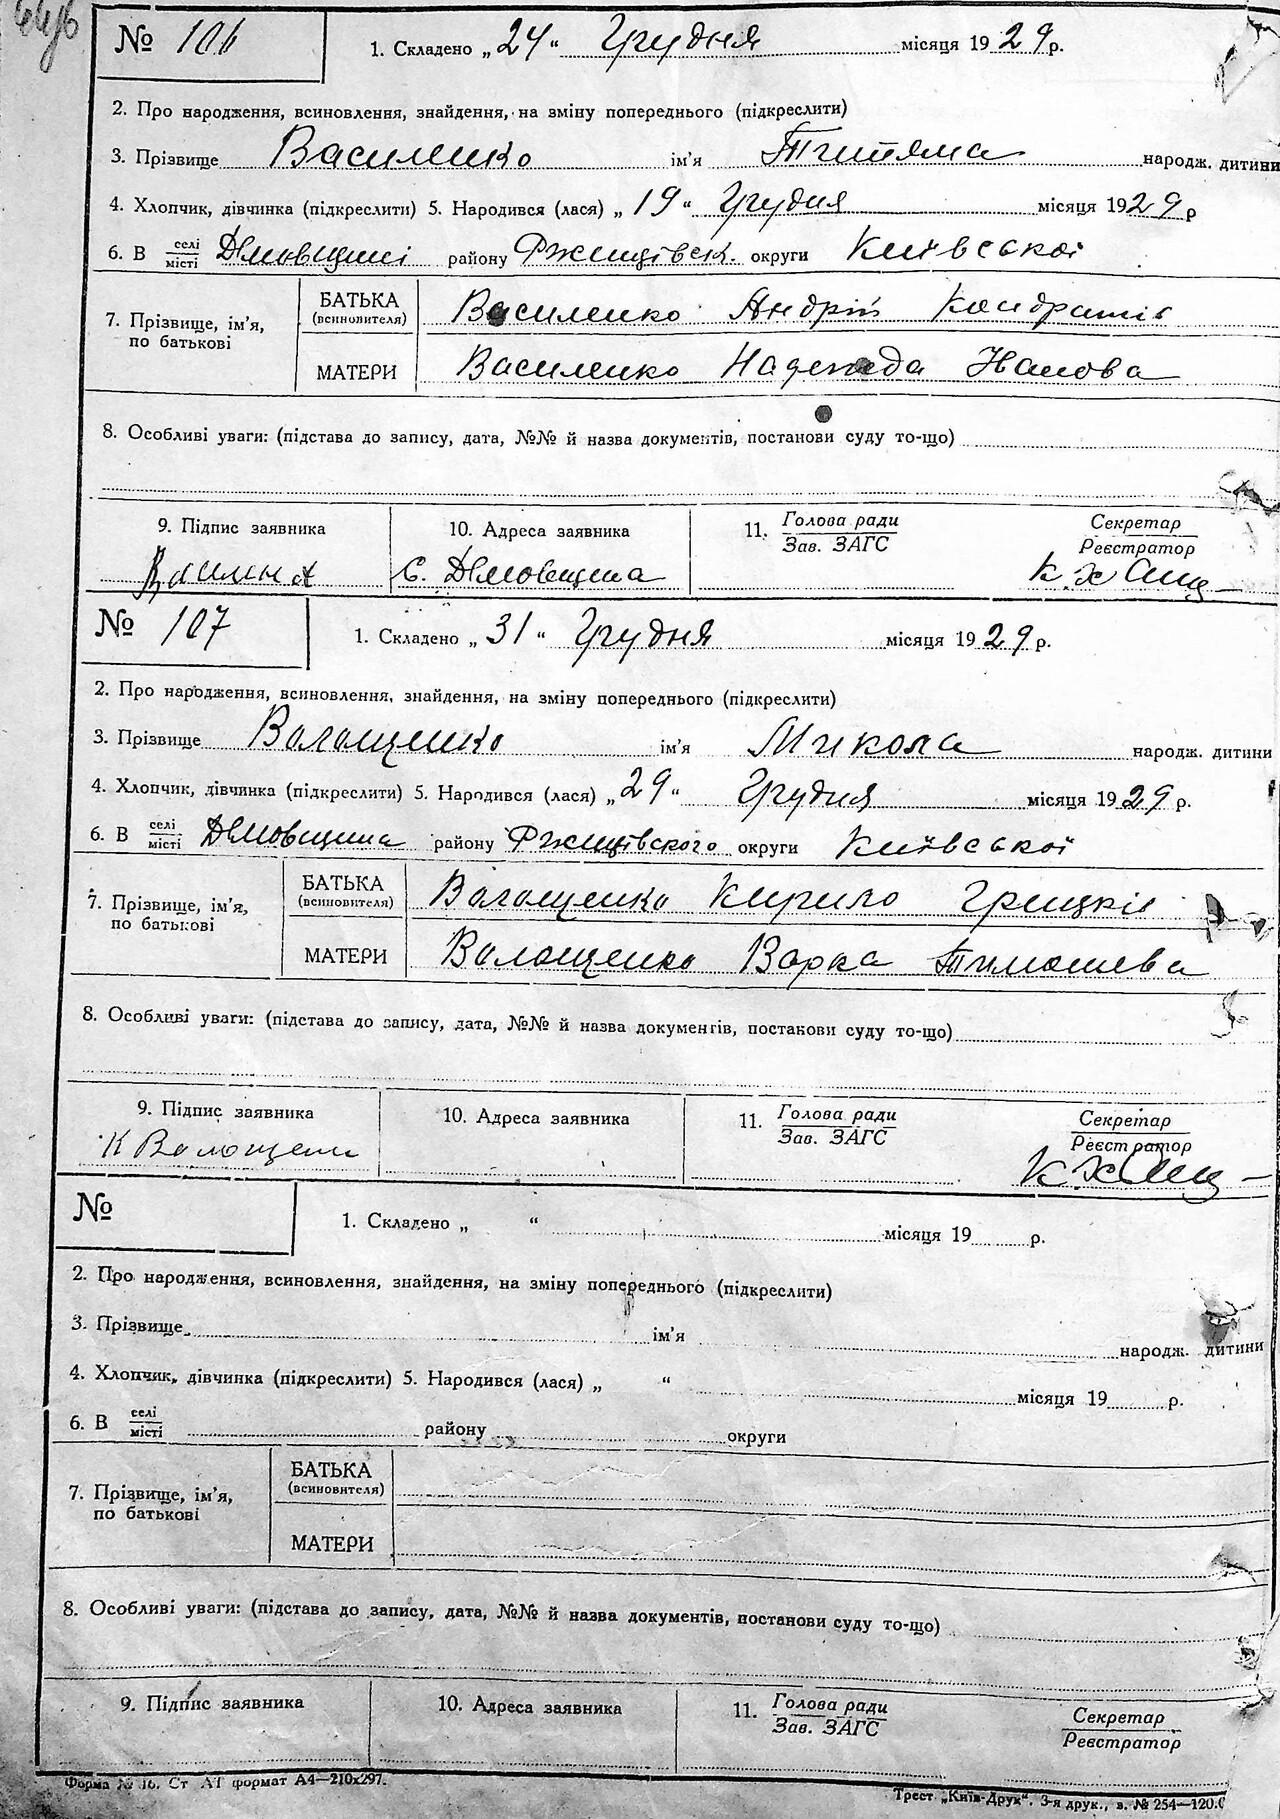 № 106
1. Складено „24“ Грудня місяця 1929 р.
2. Про народження, всиновлення, знайдення, на зміну попереднього (підкреслити)
3. Прізвище Василенко ім'я народж. дитини
4. Хлопчик, дівчинка (підкреслити) 5. Народився (лася) „19“ Грудня місяця 1929 р
6. В селі місті району Ржищівськ. округи Київської
7. Прізвище, ім'я, по батькові
БАТЬКА (всиновителя) Василенко Андрій Кондратів
МАТЕРИ Василенко Надежда Іванова
8. Особливі уваги: (підстава до запису, дата, №№ й назва документів, постанови суду то-що)
9. Підпис заявника
10. Адреса заявника
11. Голова ради
Зав. ЗАГС
Секретар
Реєстратор
с.
№ 107
1. Складено „31“ Грудня місяця 1929 р.
2. Про народження, всиновлення, знайдення, на зміну попереднього (підкреслити)
3. Прізвище Волощенко ім'я Микола народж. дитини
4. Хлопчик, дівчинка (підкреслити) 5. Народився (лася) „29“ Грудня місяця 1929 р.
6. В селі місті району Ржищівского округи Київської
7. Прізвище, ім'я, по батькові
БАТЬКА (всиновителя) Волощенко Кирило Грицків
МАТЕРИ Волощенко Варка Тимошева
8. Особливі уваги: (підстава до запису, дата, №№ й назва документів, постанови суду то-що)
9. Підпис заявника
10. Адреса заявника
11. Голова ради
Зав. ЗАГС
Секретар
Реєстратор
К Волощенк
№
1. Складено „ “ місяця 19 р.
2. Про народження, всиновлення, знайдення, на зміну попереднього (підкреслити)
3. Прізвище ім'я народж. дитини
4. Хлопчик, дівчинка (підкреслити) 5. Народився (лася) „ “ місяця 19 р.
6. В селі місті району округи
7. Прізвище, ім'я, по батькові
БАТЬКА (всиновителя)
МАТЕРИ
8. Особливі уваги: (підстава до запису, дата, №№ й назва документів, постанови суду то-що)
9. Підпис заявника
10. Адреса заявника
11. Голова ради
Зав. ЗАГС
Секретар
Реєстратор
Форма № 16. Ст А1 формат А4—210х297.
Трест „Київ-Друк“. 3-я друк., з. № 254—120.0